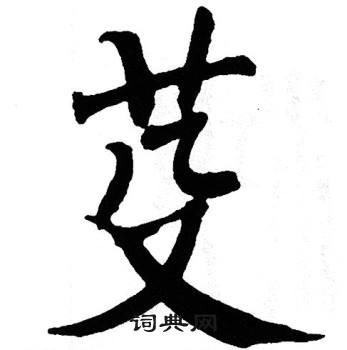 芟
词典网